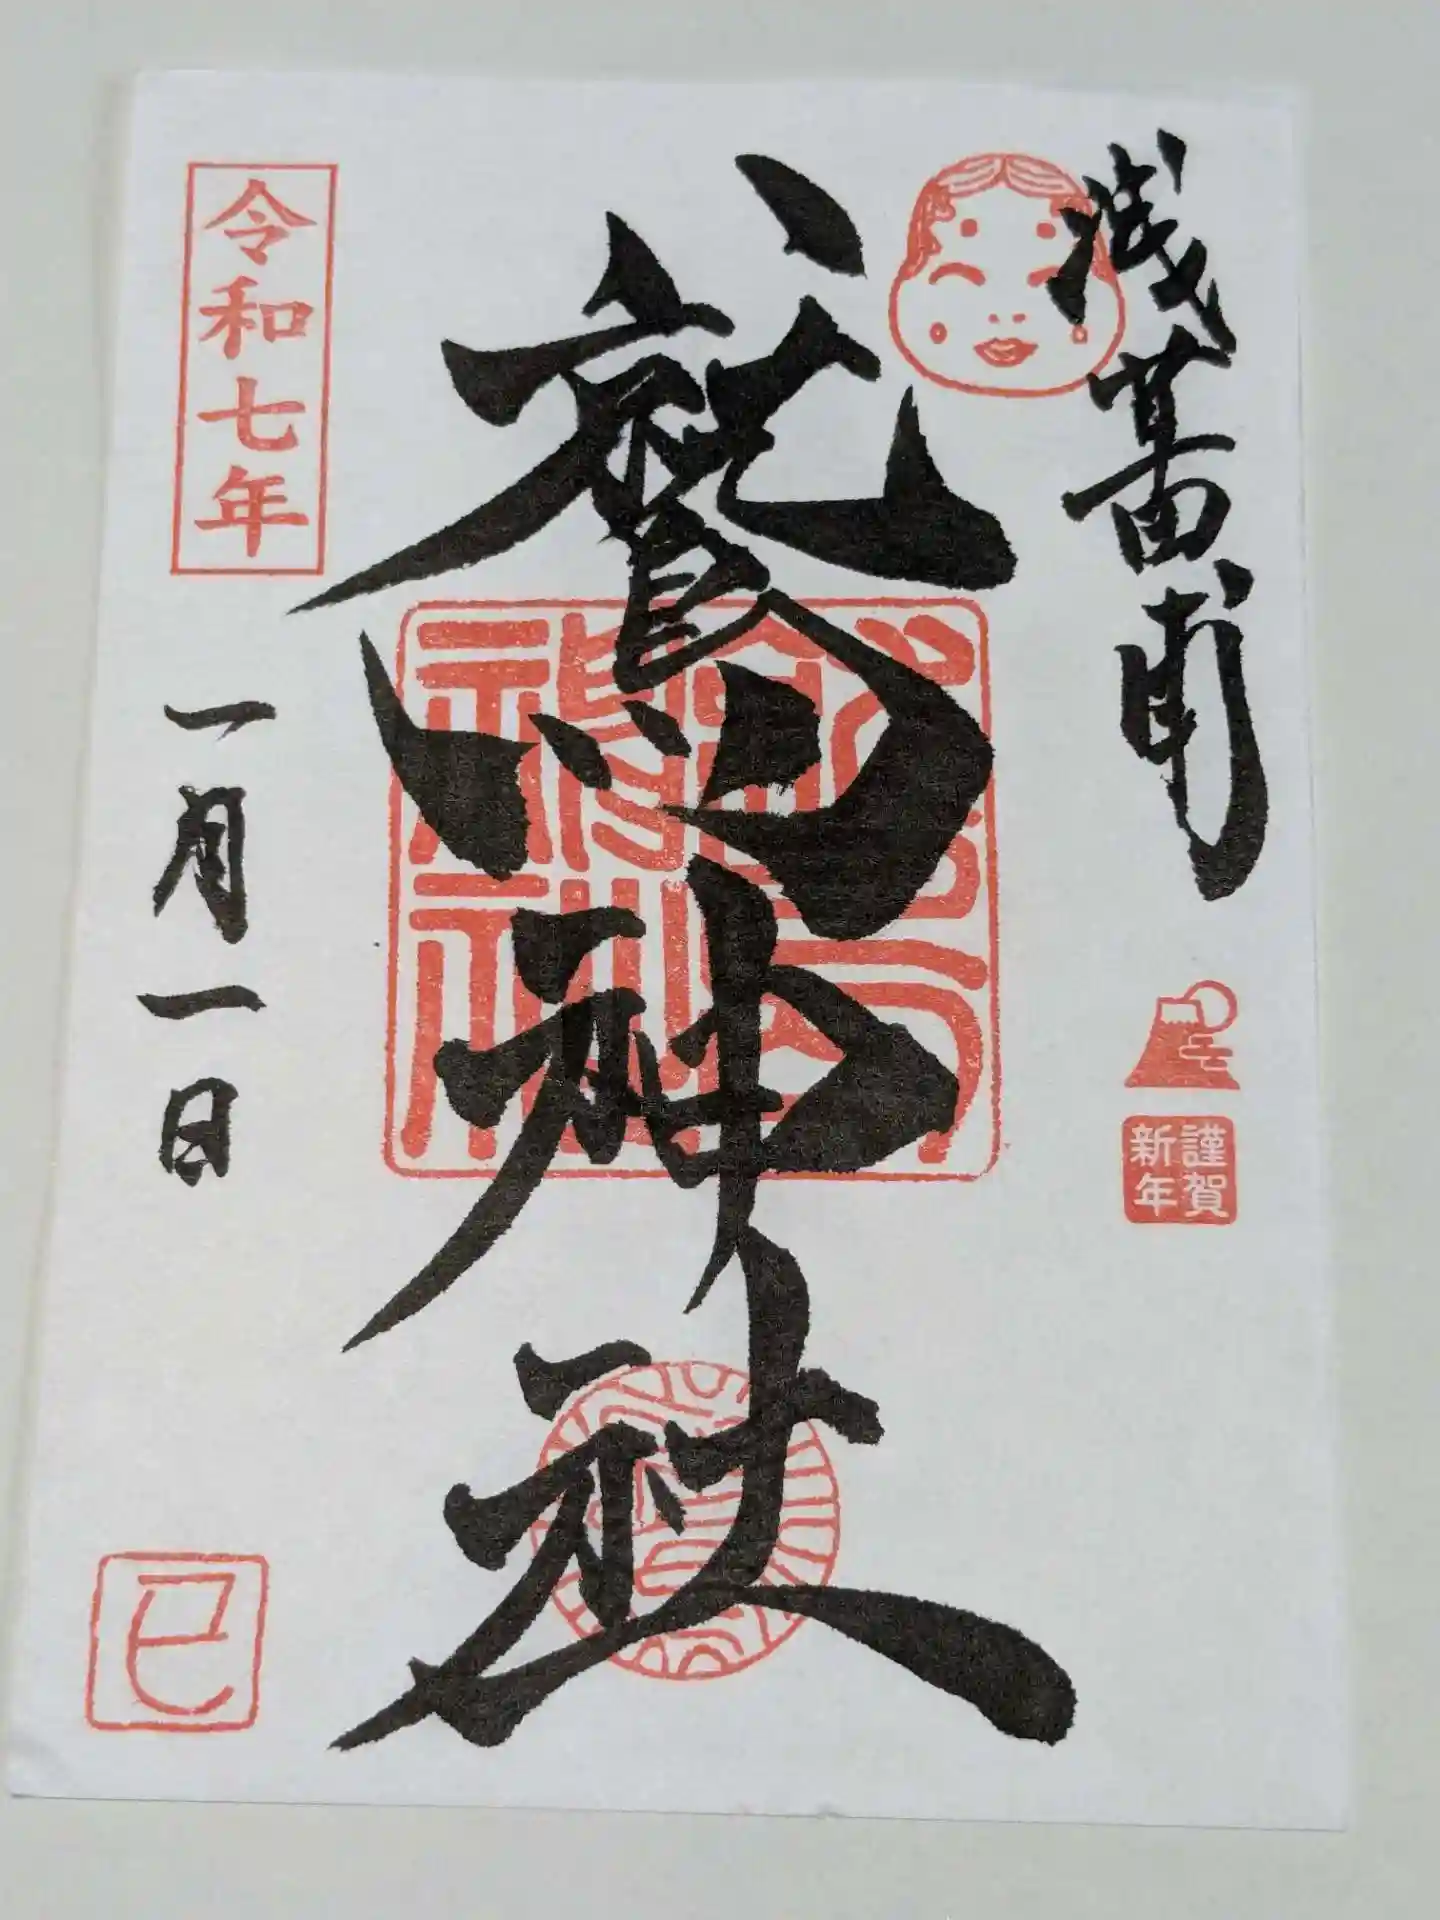 浅草田甫
謹賀
新年
鷲神社
令和七年
一月一日
巳